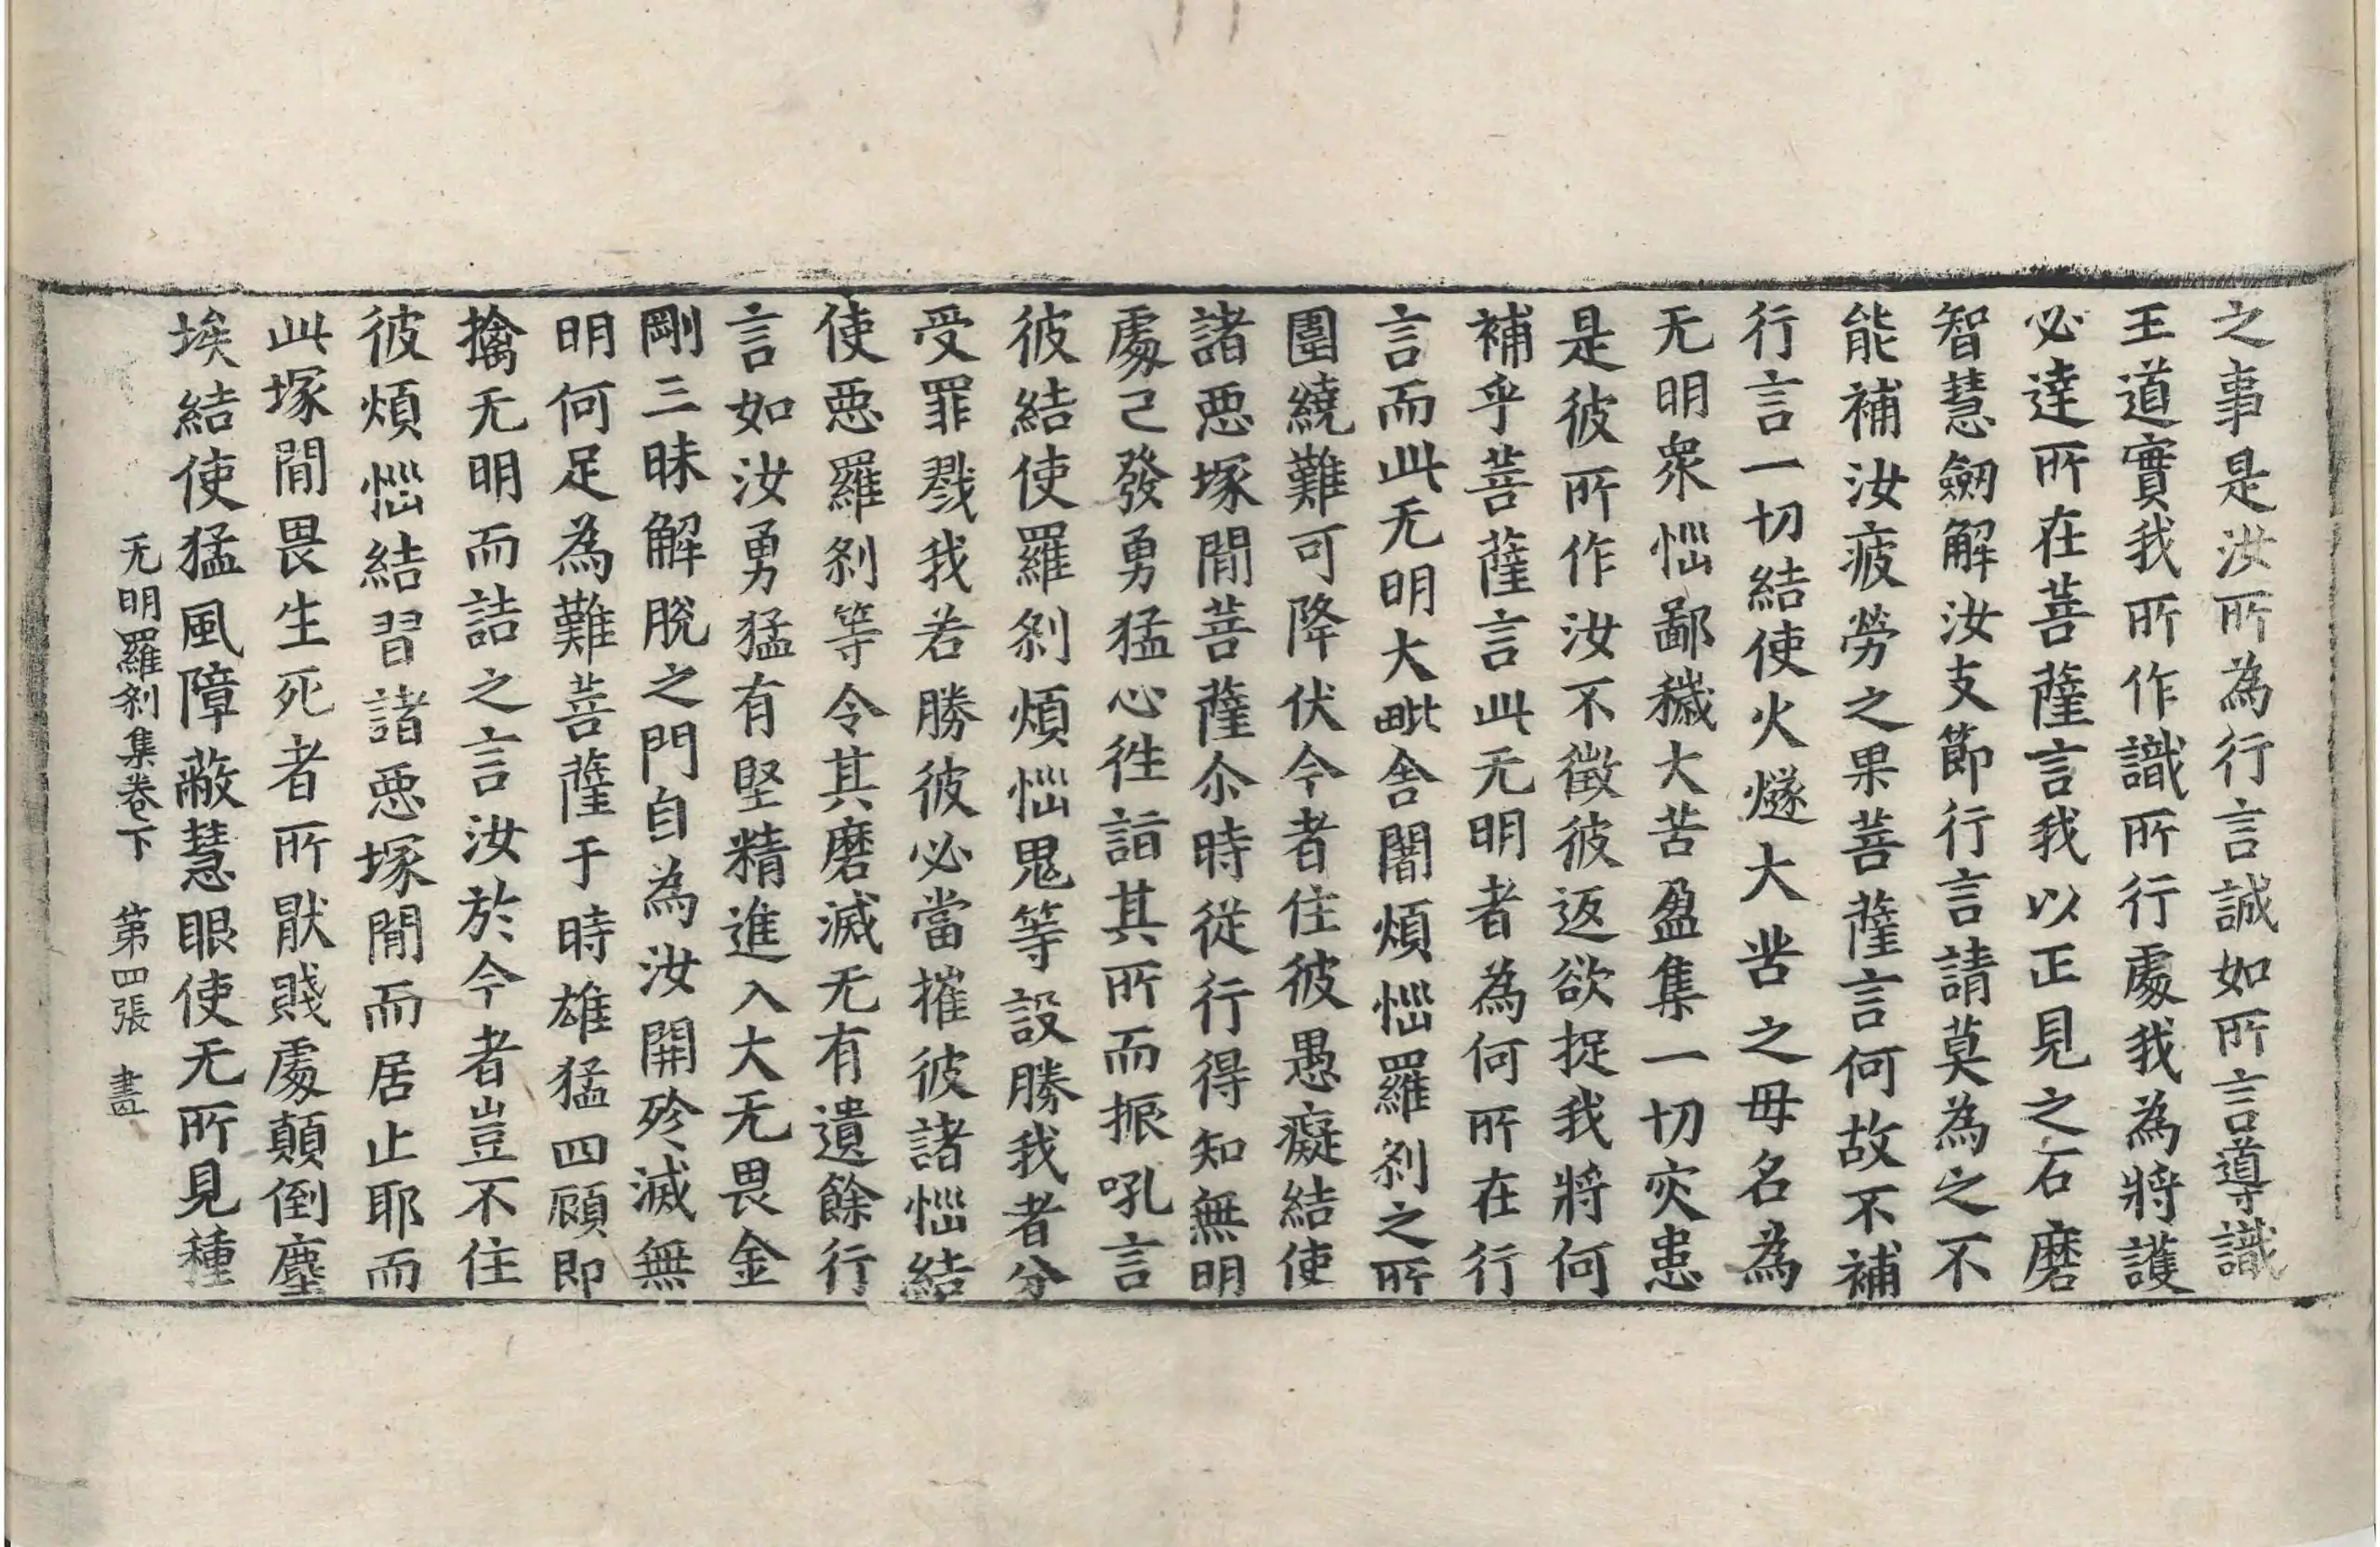 之事是汝所為行言誠如所言導識
王道實我所作識所行處我為將護
必達所在菩薩言我以正見之石磨
智慧劒解汝支節行言請莫為之不
能補汝疲勞之果菩薩言何故不補
行言一切結使火燧大苦之毋名為
无明衆惱鄙穢大苦盈集一切灾患
是彼所作汝不徵彼返欲捉我將何
補乎菩薩言此无明者為何所在行
言而此无明大毗舍闍煩惱羅剎之所
圍繞難可降伏今者住彼愚癡結使
諸惡塚閒菩薩尒時從行得知無明
處已發勇猛心徃詣其所而振吼言
彼結使羅剎煩惱鬼等設勝我者分
受罪戮我若勝彼必當摧彼諸惱結
使惡羅剎等令其磨滅无有遺餘行
言如汝勇猛有堅精進入大无畏金
剛三昧解脫之門自為汝開殄滅無
明何足為難菩薩于時雄猛四顧即
擒无明而詰之言汝於今者豈不住
彼煩惱結習諸惡塚閒而居止耶而
此塚閒畏生死者所猒賤處顛倒塵
埃結使猛風障蔽慧眼使无所見種
无明羅剎集卷下　第四張　畫